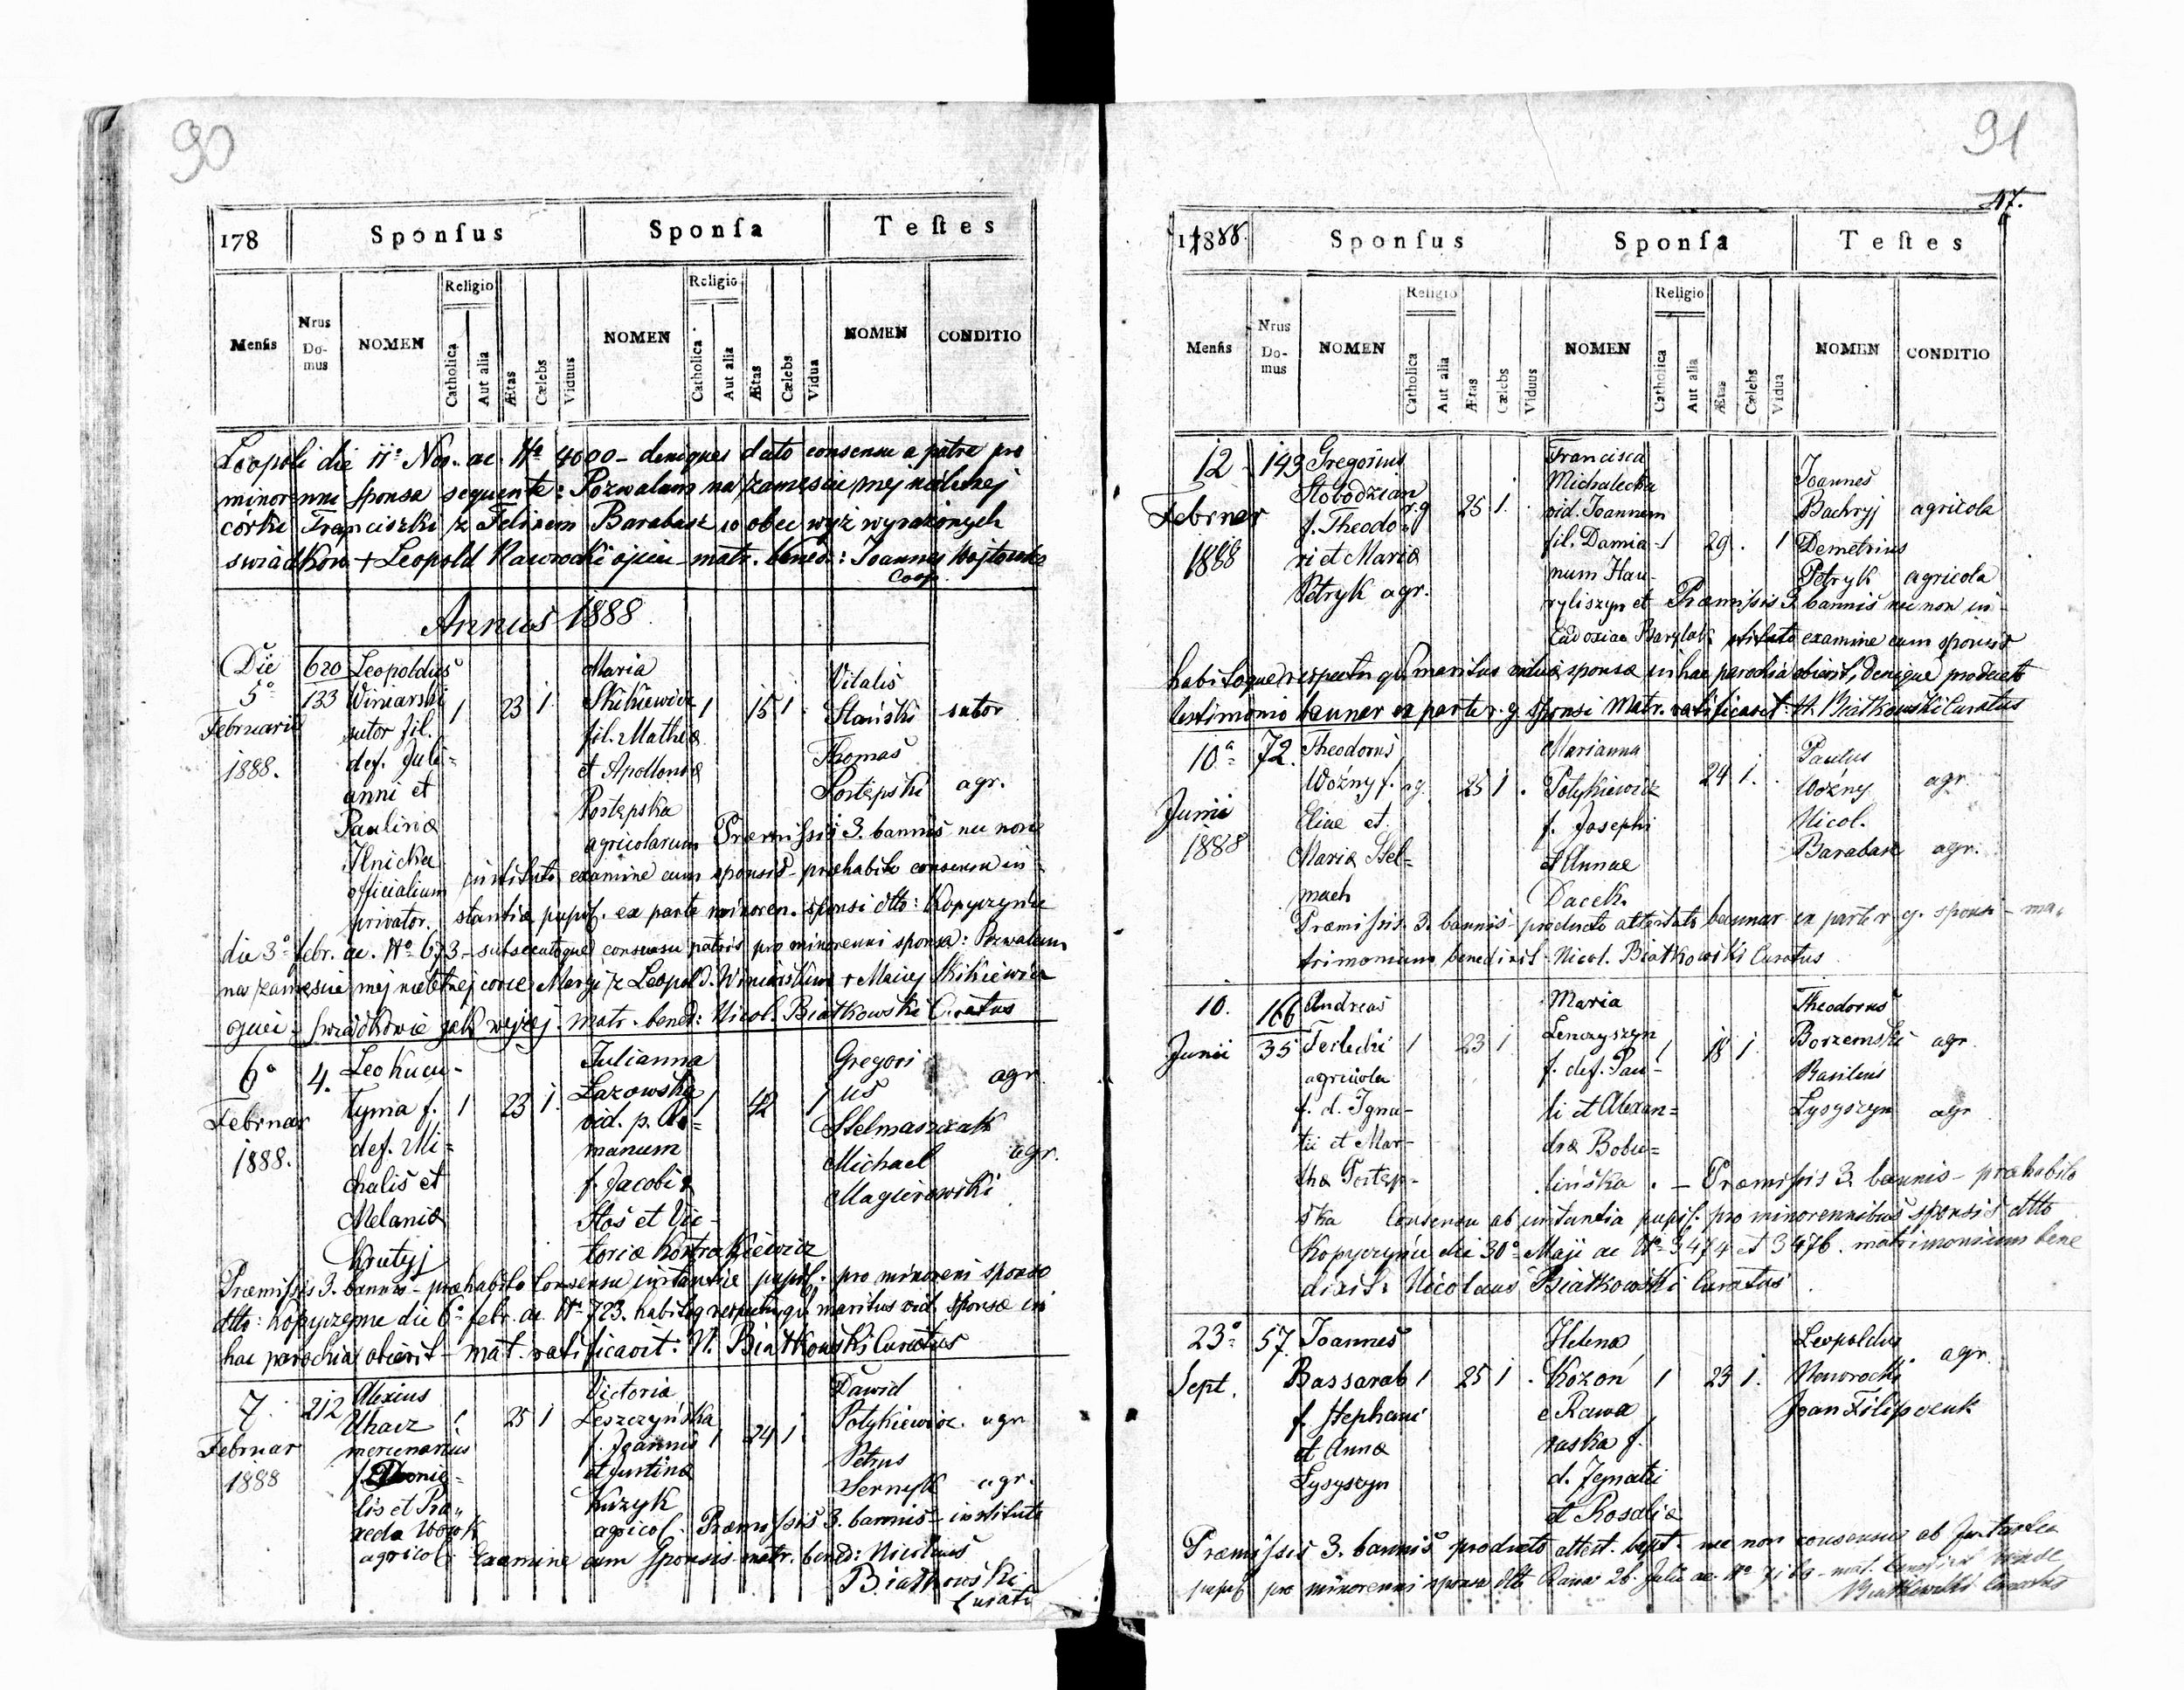 90
178
Sponſus
Sponſa
Teſtes
Menſis
Nrus Domus
NOMEN
Religio
Catholica
Aut alia
Ætas
Cælebs
Viduus
NOMEN
Religio
Catholica
Aut alia
Ætas
Cælebs
Vidua
NOMEN
CONDITIO
Leopoli die 11ª Nov. ac. Nº 4000 – denique dato consensu a patre pro
minorenni sponsa sequente: Pozwalam na zamęście mej nieletniej
córki Franciszki z Felixem Barabasz w obec wyż wyrażonych
świadków + Leopold Nawrocki ojciec – matr. bened.: Joannes
Coop.
Annus 1888
Die 5º Februarii 1888.
620
133
Leopoldus
Winiarski
sutor fil.
def. Juli=
anni et
Paulinæ
Ilnicka
officialium
privator.
1
23
1
Maria
Skikiewicz
fil. Mathæ
et Apolloniæ
Postępska
agricolarum
1
15
1
Vitalis
Stański
sutor
Thomas
Postępski
agr.
Præmissis 3. bannis nec non
instituto examine cum sponsis – præhabito consensu in-
stantiæ pupil. ex parte minoren. sponsi dtto: Kopyczyńce
die 3º febr. ac. Nº 673 – subsecutoque consensu patris pro minorenni sponsa: Pozwalam
na zamęście mej nieletniej córce Maryi z Leopold. Winiarskim + Maciej Skikiewicz
ojciec – świadkowie jak wyżej. matr. bened: Nicol. Białkowski Curatus
6º
Februar
1888.
4.
Leo Kucu-
tyma f.
def. Mi=
chalis et
Melaniæ
Krutyj
1
23
1.
Julianna
Łazowska
vid. p. Ro=
manum
f. Jacobi &
Stoś et Vic-
toriæ Kostrakiewicz
1
42
1
Gregori
us
Stelmaszczuk
agr.
Michael
Magierowski
agr.
Præmissis 3. bannis – præhabito consensu instantiæ pupil. pro minoreni sponso
dtto: Kopyczyńce die 6º febr. ac Nº 723. habitoq respectu, qd maritus vid. sponsæ in
hac parochia obierit – mat. ratificavit: N. Białkowski Curatus
7.
Februar
1888
212
Alexius
Uhacz
mercenarius
lis et Pra-
xeda Wowk
agricol.
1
25
1
Victoria
Leszczyńska
f. Joannis
et Justinæ
Kuzyk
agricol.
1
24
1
Dawid
Potykiewicz
agr.
Petrus
Sernyk
agr.
Præmissis 3. bannis – instituto
examine cum sponsis matr. bened: Nicolaus
Białkowski
Curatus
91
17.
1888.
Sponſus
Sponſa
Teſtes
Menſis
Nrus Domus
NOMEN
Religio
Catholica
Aut alia
Ætas
Cælebs
Viduus
NOMEN
Religio
Catholica
Aut alia
Ætas
Cælebs
Vidua
NOMEN
CONDITIO
12
Februar
1888
149
Gregorius
Słobodzian
f. Theodo-
ri et Mariæ
Petryk agr.
r.g
25
1.
Francisca
Michalecka
vid. Joannem
fil. Damia-
num Hau-
ryliszyn et
Eudoxiæ Barylak
1
29.
1
Joannes
Bachryj
agricola
Demetrius
Petryk
agricola
Præmissis 3. bannis nec non in-
stituto examine cum sponsis
habitoque respectu qd maritus viduæ sponsæ in hac parochia obierit, denique producto
testimonio bannor ex parte r. g. sponsi Matr. ratificavit: N. Białkowski Curatus
10ª
Junii
1888
72.
Theodorus
Woźny f.
Eliae et
Mariæ Stel-
mach
r.g.
25
1.
Marianna
Potykiewicz
f. Josephi
et Annae
Dacek.
24
1.
Paulus
Woźny
agr.
Nicol.
Barabasz
agr.
Præmissis 3. bannis – producto attestato bannor ex parte r. g. sponsi – ma-
trimonium benedixit: Nicol. Białkowski Curatus
10.
Junii
166
35
Andreas
Terlecki
agricola
f. d. Igna-
tii et Mar-
thæ Postęp-
ska
1
23
1
Maria
Lenczyszyn
f. def. Pau-
li et Alexan=
dræ Bobu=
lińska.
1
18
1
Theodorus
Borzemski
agr.
Basilius
Łysyszyn
agr
– Præmissis 3. bannis – præhabito
consensu ab instantia pupil. pro minorennibus sponsis dtto
Kopyczyńce die 30º Maji ac Nº 3474 et 3476. matrimonium bene
dixit: Nicolaus Białkowski Curatus
23º
Sept.
57
Joannes
Bassarab
f. Stephani
et Annæ
Łysyszyn
1
25
1.
Helena
Kozoń
e Rawa
raska f.
d. Ignatii
et Rosaliæ
1
23
1.
Leopoldus
Nawrocki
agr.
Jean Filipczuk
Præmissis 3. bannis producto attest. bapt. nec non consensu ab Instantia
pupil pro minorenni sponsa dtto Rawa 26. Julii ac. Nº
Białkowski Curatus